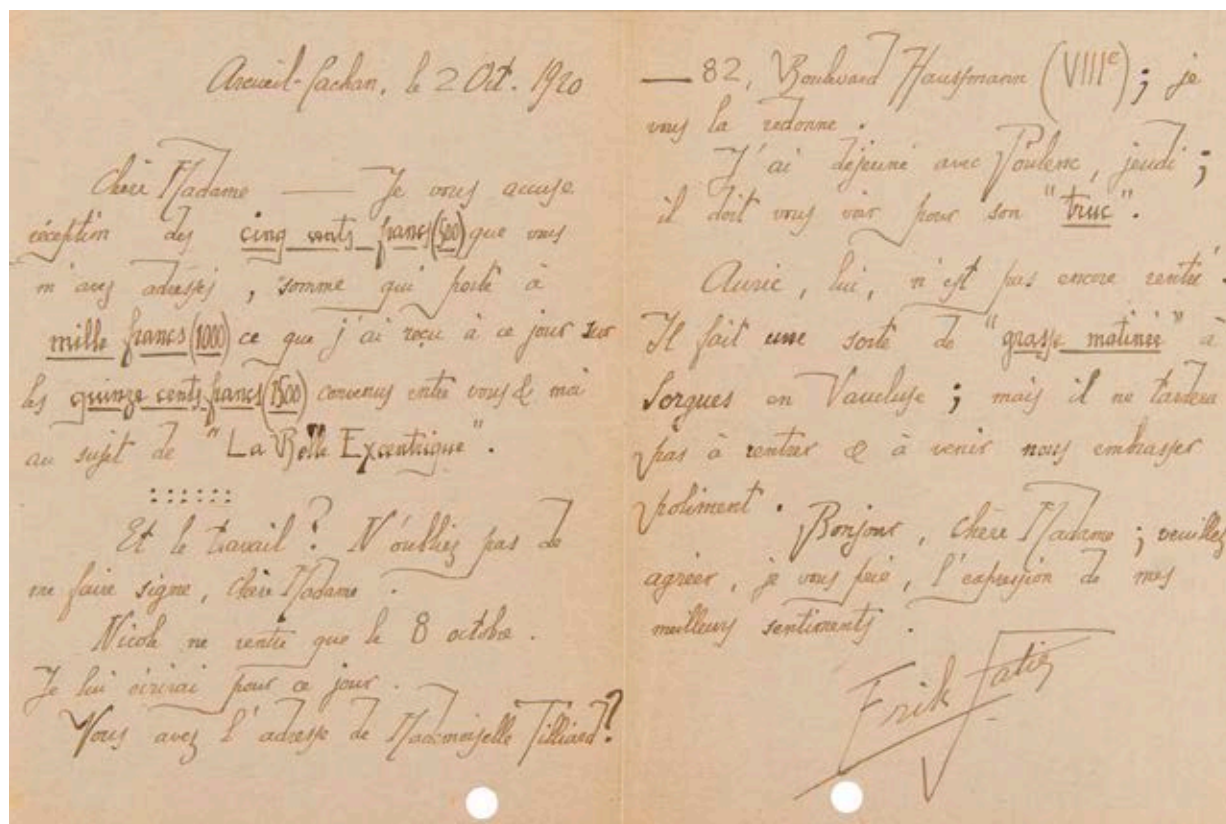 Arcueil-Cachan, le 2 Oct. 1920
Chère Madame —— Je vous accuse
réception des cinq cents francs (500) que vous
m'avez adressés, somme qui porte à
mille francs (1000) ce que j'ai reçu à ce jour sur
les quinze cents francs (1500) convenus entre vous & moi
au sujet de "La Belle Excentrique".
::::::
Et le travail? N'oubliez pas de
me faire signe, chère Madame.
Nicole ne rentre que le 8 octobre.
Je lui écrirai pour ce jour.
Vous avez l'adresse de Mademoiselle Tilliard?
— 82, Boulevard Haussmann (VIIIe); je
vous la redonne.
J'ai déjeuné avec Poulenc, jeudi;
il doit vous voir pour son "truc".
Auric, lui, n'est pas encore rentré.
Il fait une sorte de "grasse matinée" à
Sorgues en Vaucluse; mais il ne tardera
pas à rentrer & à venir nous embrasser
poliment.
Bonjour, chère Madame; veuillez
agréer, je vous prie, l'expression de mes
meilleurs sentiments.
Erik Satie